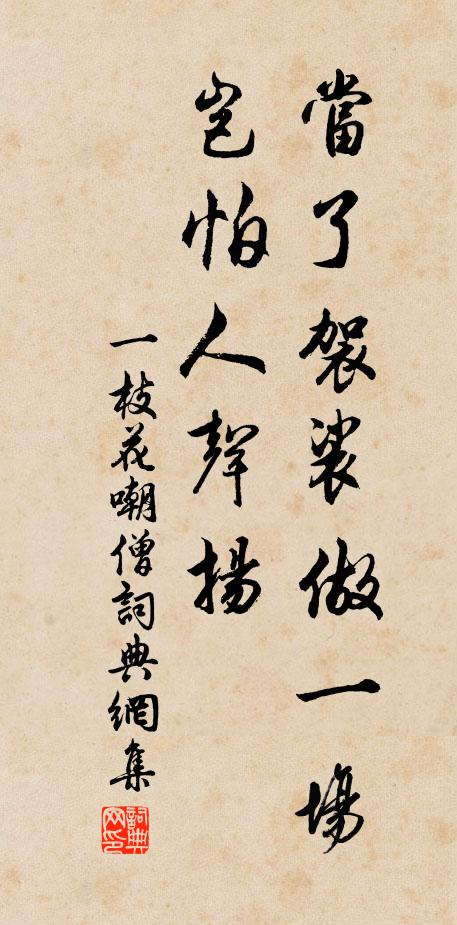 當了袈裟做一場
豈怕人聲揚
一枝花嘲僧詞典網集
詞典
网印